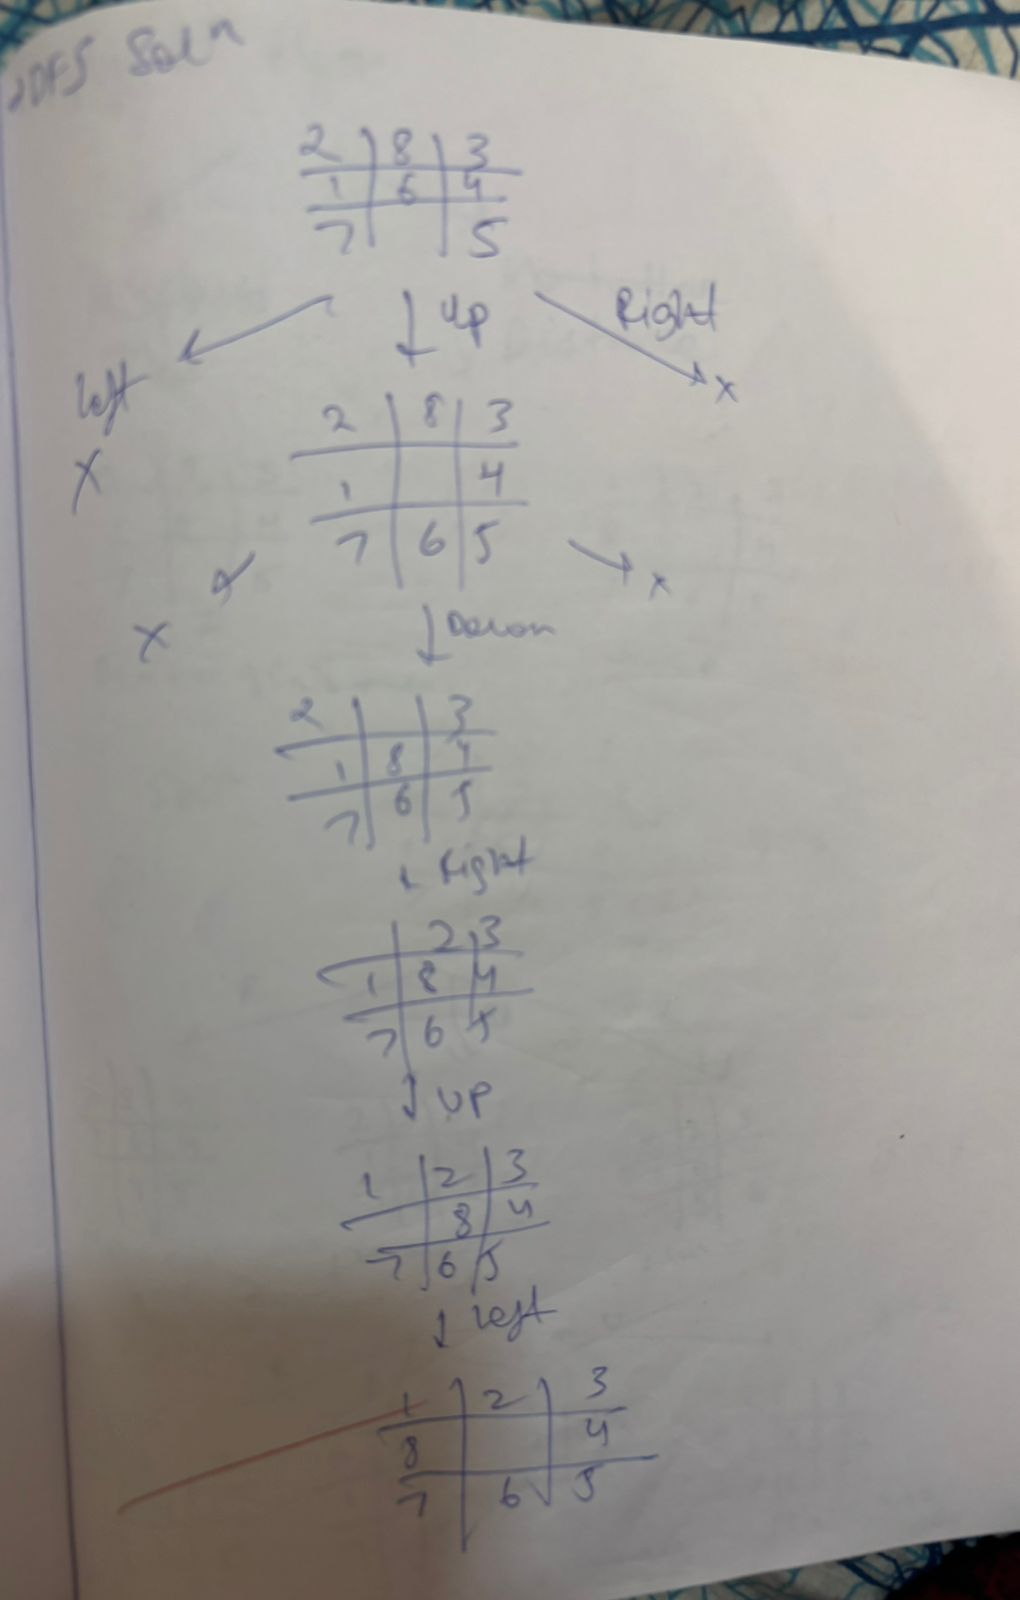 DFS Soln
2 8 3
1 6 4
7 5
Up
Right
left
X
x
2 8 3
1 4
7 6 5
X
x
Down
2 3
1 8 4
7 6 5
Right
2 3
1 8 4
7 6 5
UP
1 2 3
8 4
7 6 5
left
1 2 3
8 4
7 6 5